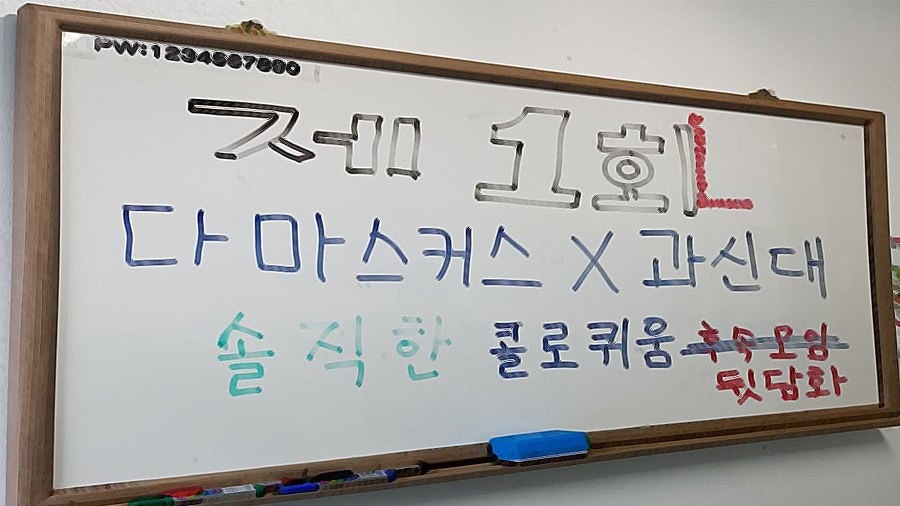 PW:1234567890
제 1회
다마스커스 X 과신대
솔직한 콜로퀴움 후속모임
뒷담화